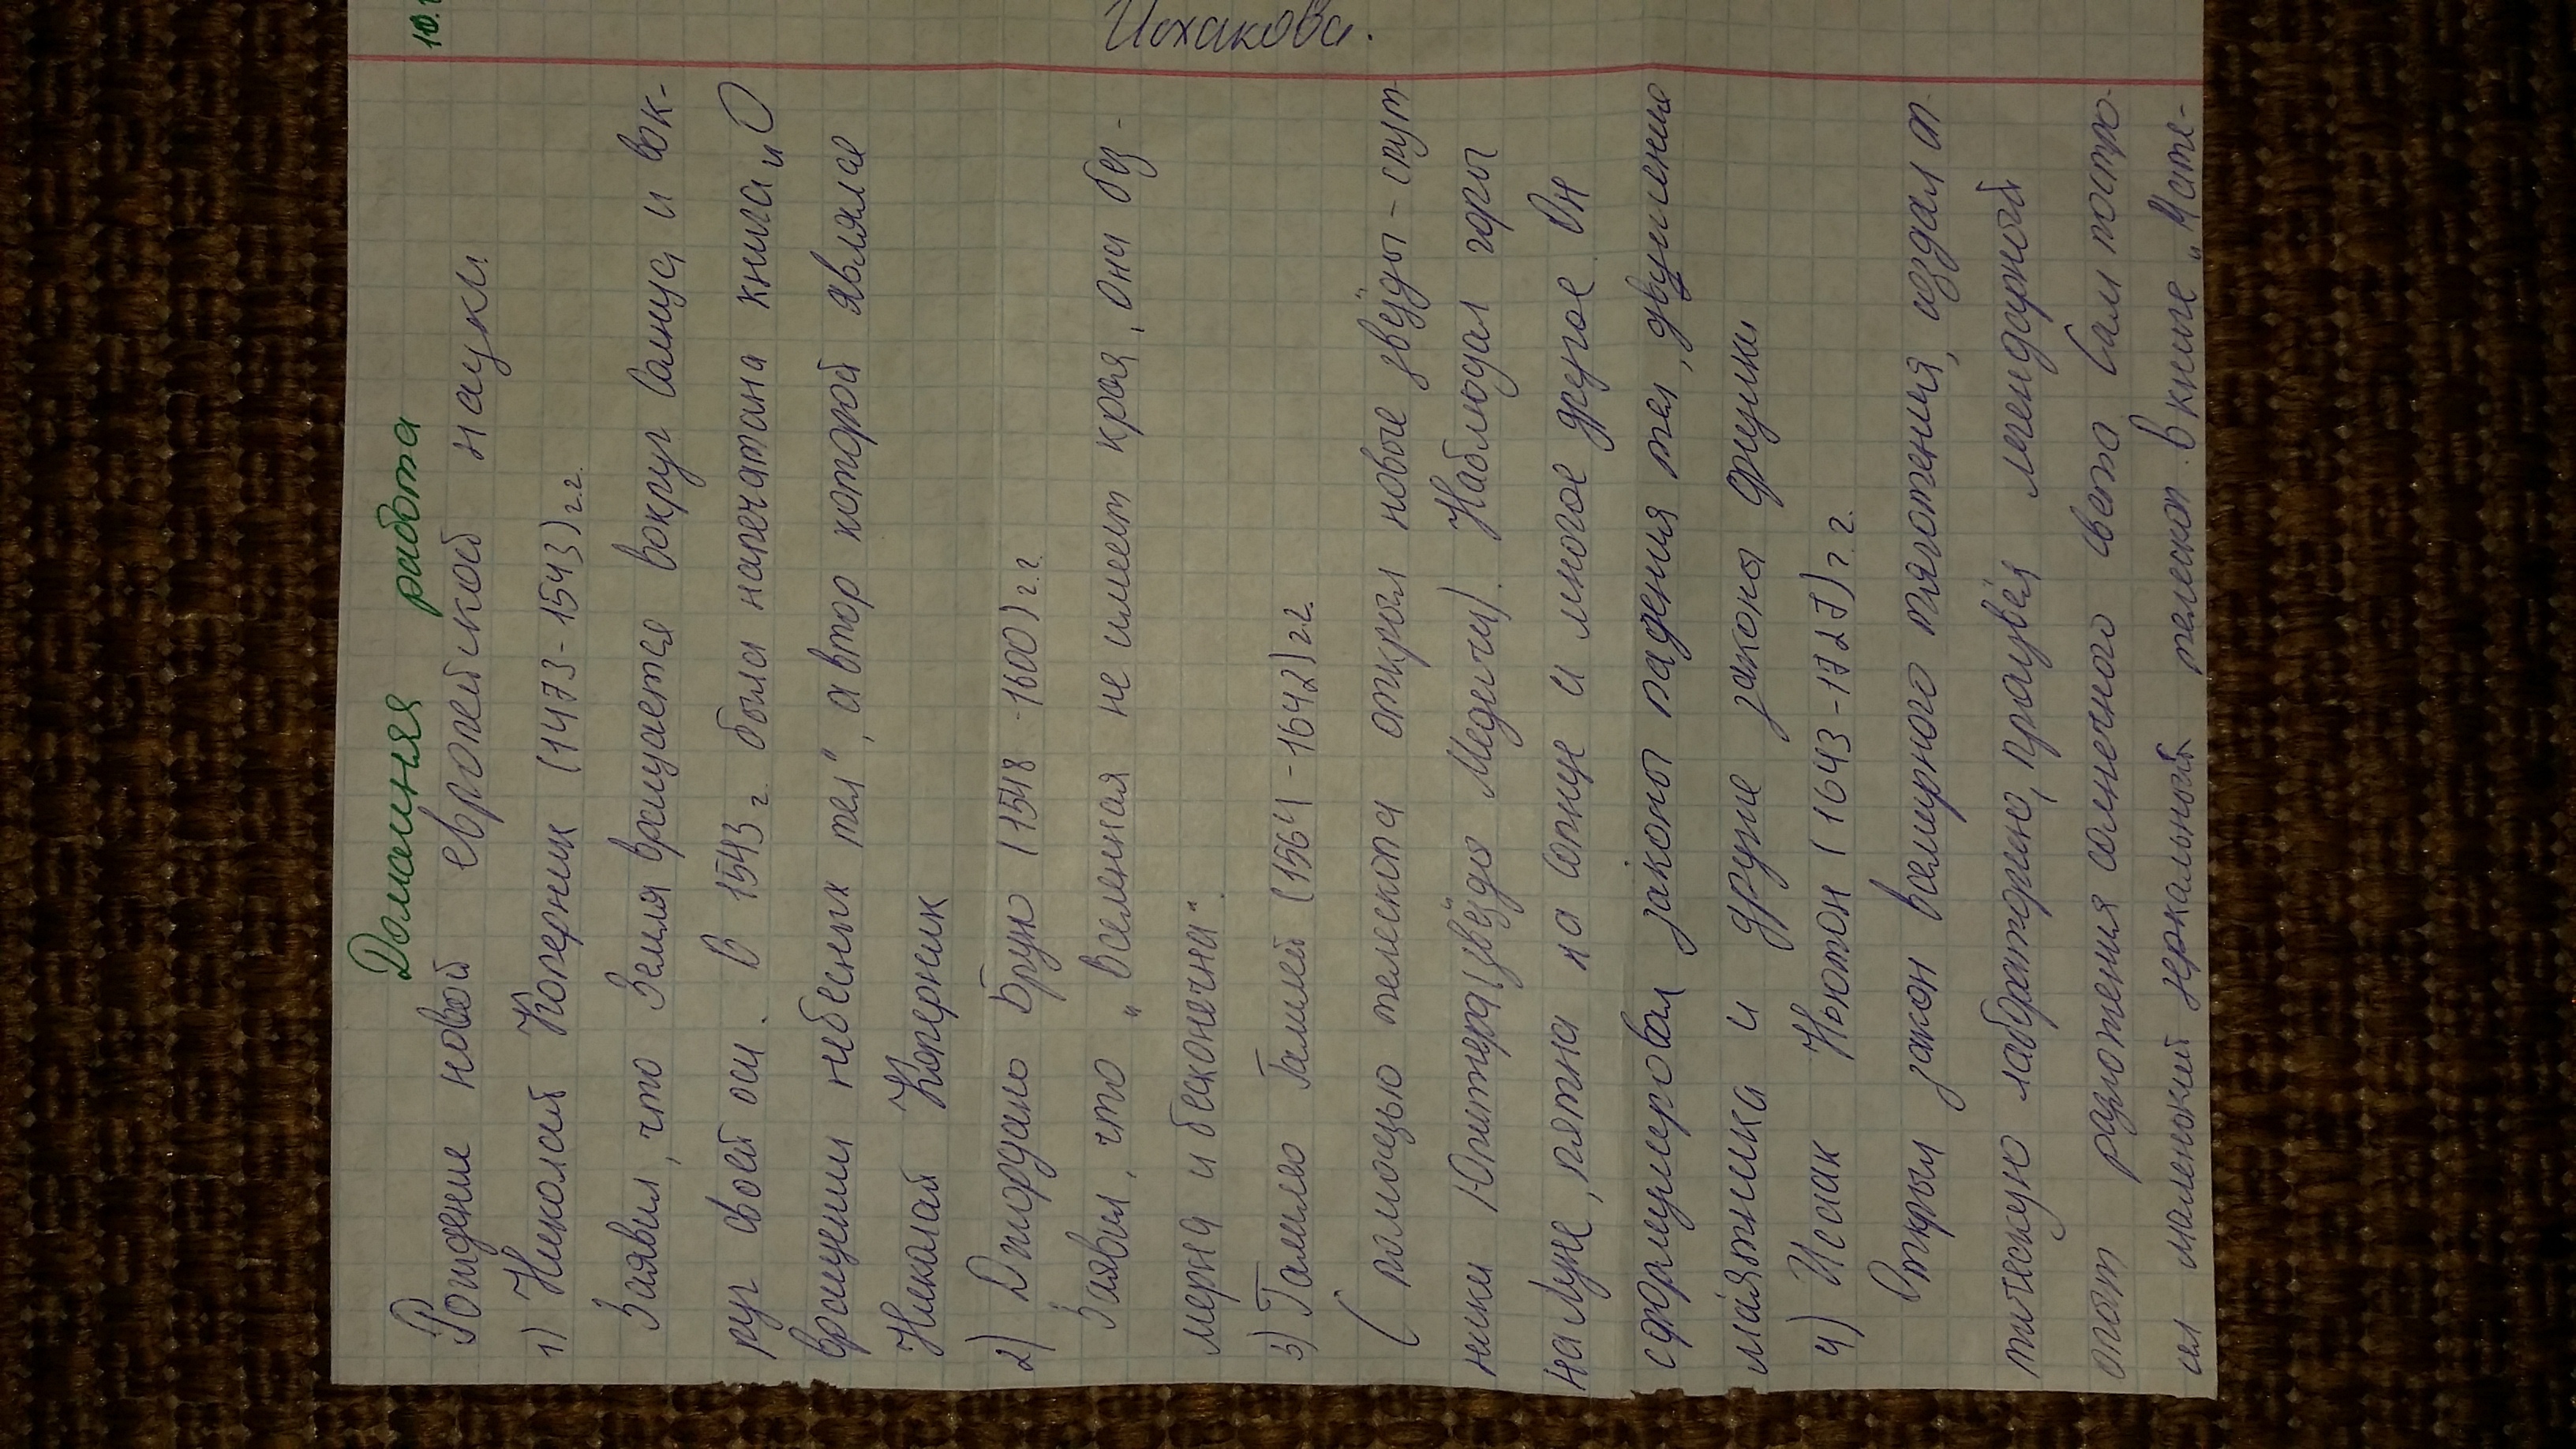 10.
Исхакова.
Домашняя работа
Рождение новой европейской науки.
1) Николай Коперник (1473-1543) г.г.
Заявил, что Земля вращается вокруг Солнца и вок-
руг своей оси. В 1543 г. была напечатана книга „О
вращении небесных тел", автор которой являлся
Николай Коперник
2) Джордано Бруно (1548-1600) г.г.
Заявил, что „Вселенная не имеет края, она без-
мерна и бесконечна".
3) Галилео Галилей (1564-1642) г.г.
С помощью телескопа открыл новые звёзды - спут-
ники Юпитера (звёзды Медичи). Наблюдал горы
на Луне, пятна на Солнце и многое другое Он
сформулировал законы падения тел, движения
маятника и другие законы физики
4) Исаак Ньютон (1643-1727) г.г.
Открыл закон всемирного тяготения, создал оп-
тическую лабораторию, провёл легендарный
опыт разложения солнечного света Сам постро-
ил маленький зеркальный телескоп. В книге „Мате-